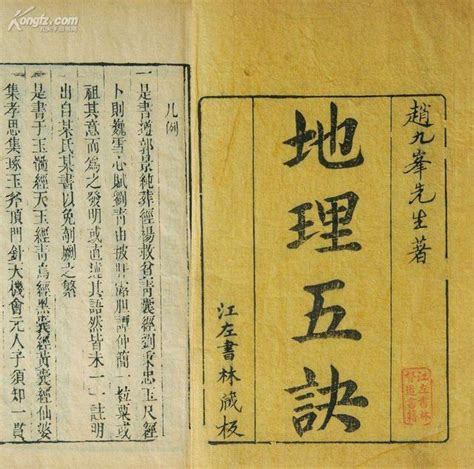 Kongfz.com
趙九峯先生著
地理五訣
江左書林藏板
江左書林
凡例
一是書遵郭景純葬經楊救貧青囊經劉秉忠玉尺經
卜則巍雪心賦劉青田披肝露胆譚仲簡一粒粟或
祖其意而爲之發明或直述其語然皆未一一註明
出自某氏某書以免剞劂之繁
是書于玉髓經天玉經青烏經黑囊經黃囊經仙婆
集孝思集琢玉斧頂門針天機會元人子須知一貫